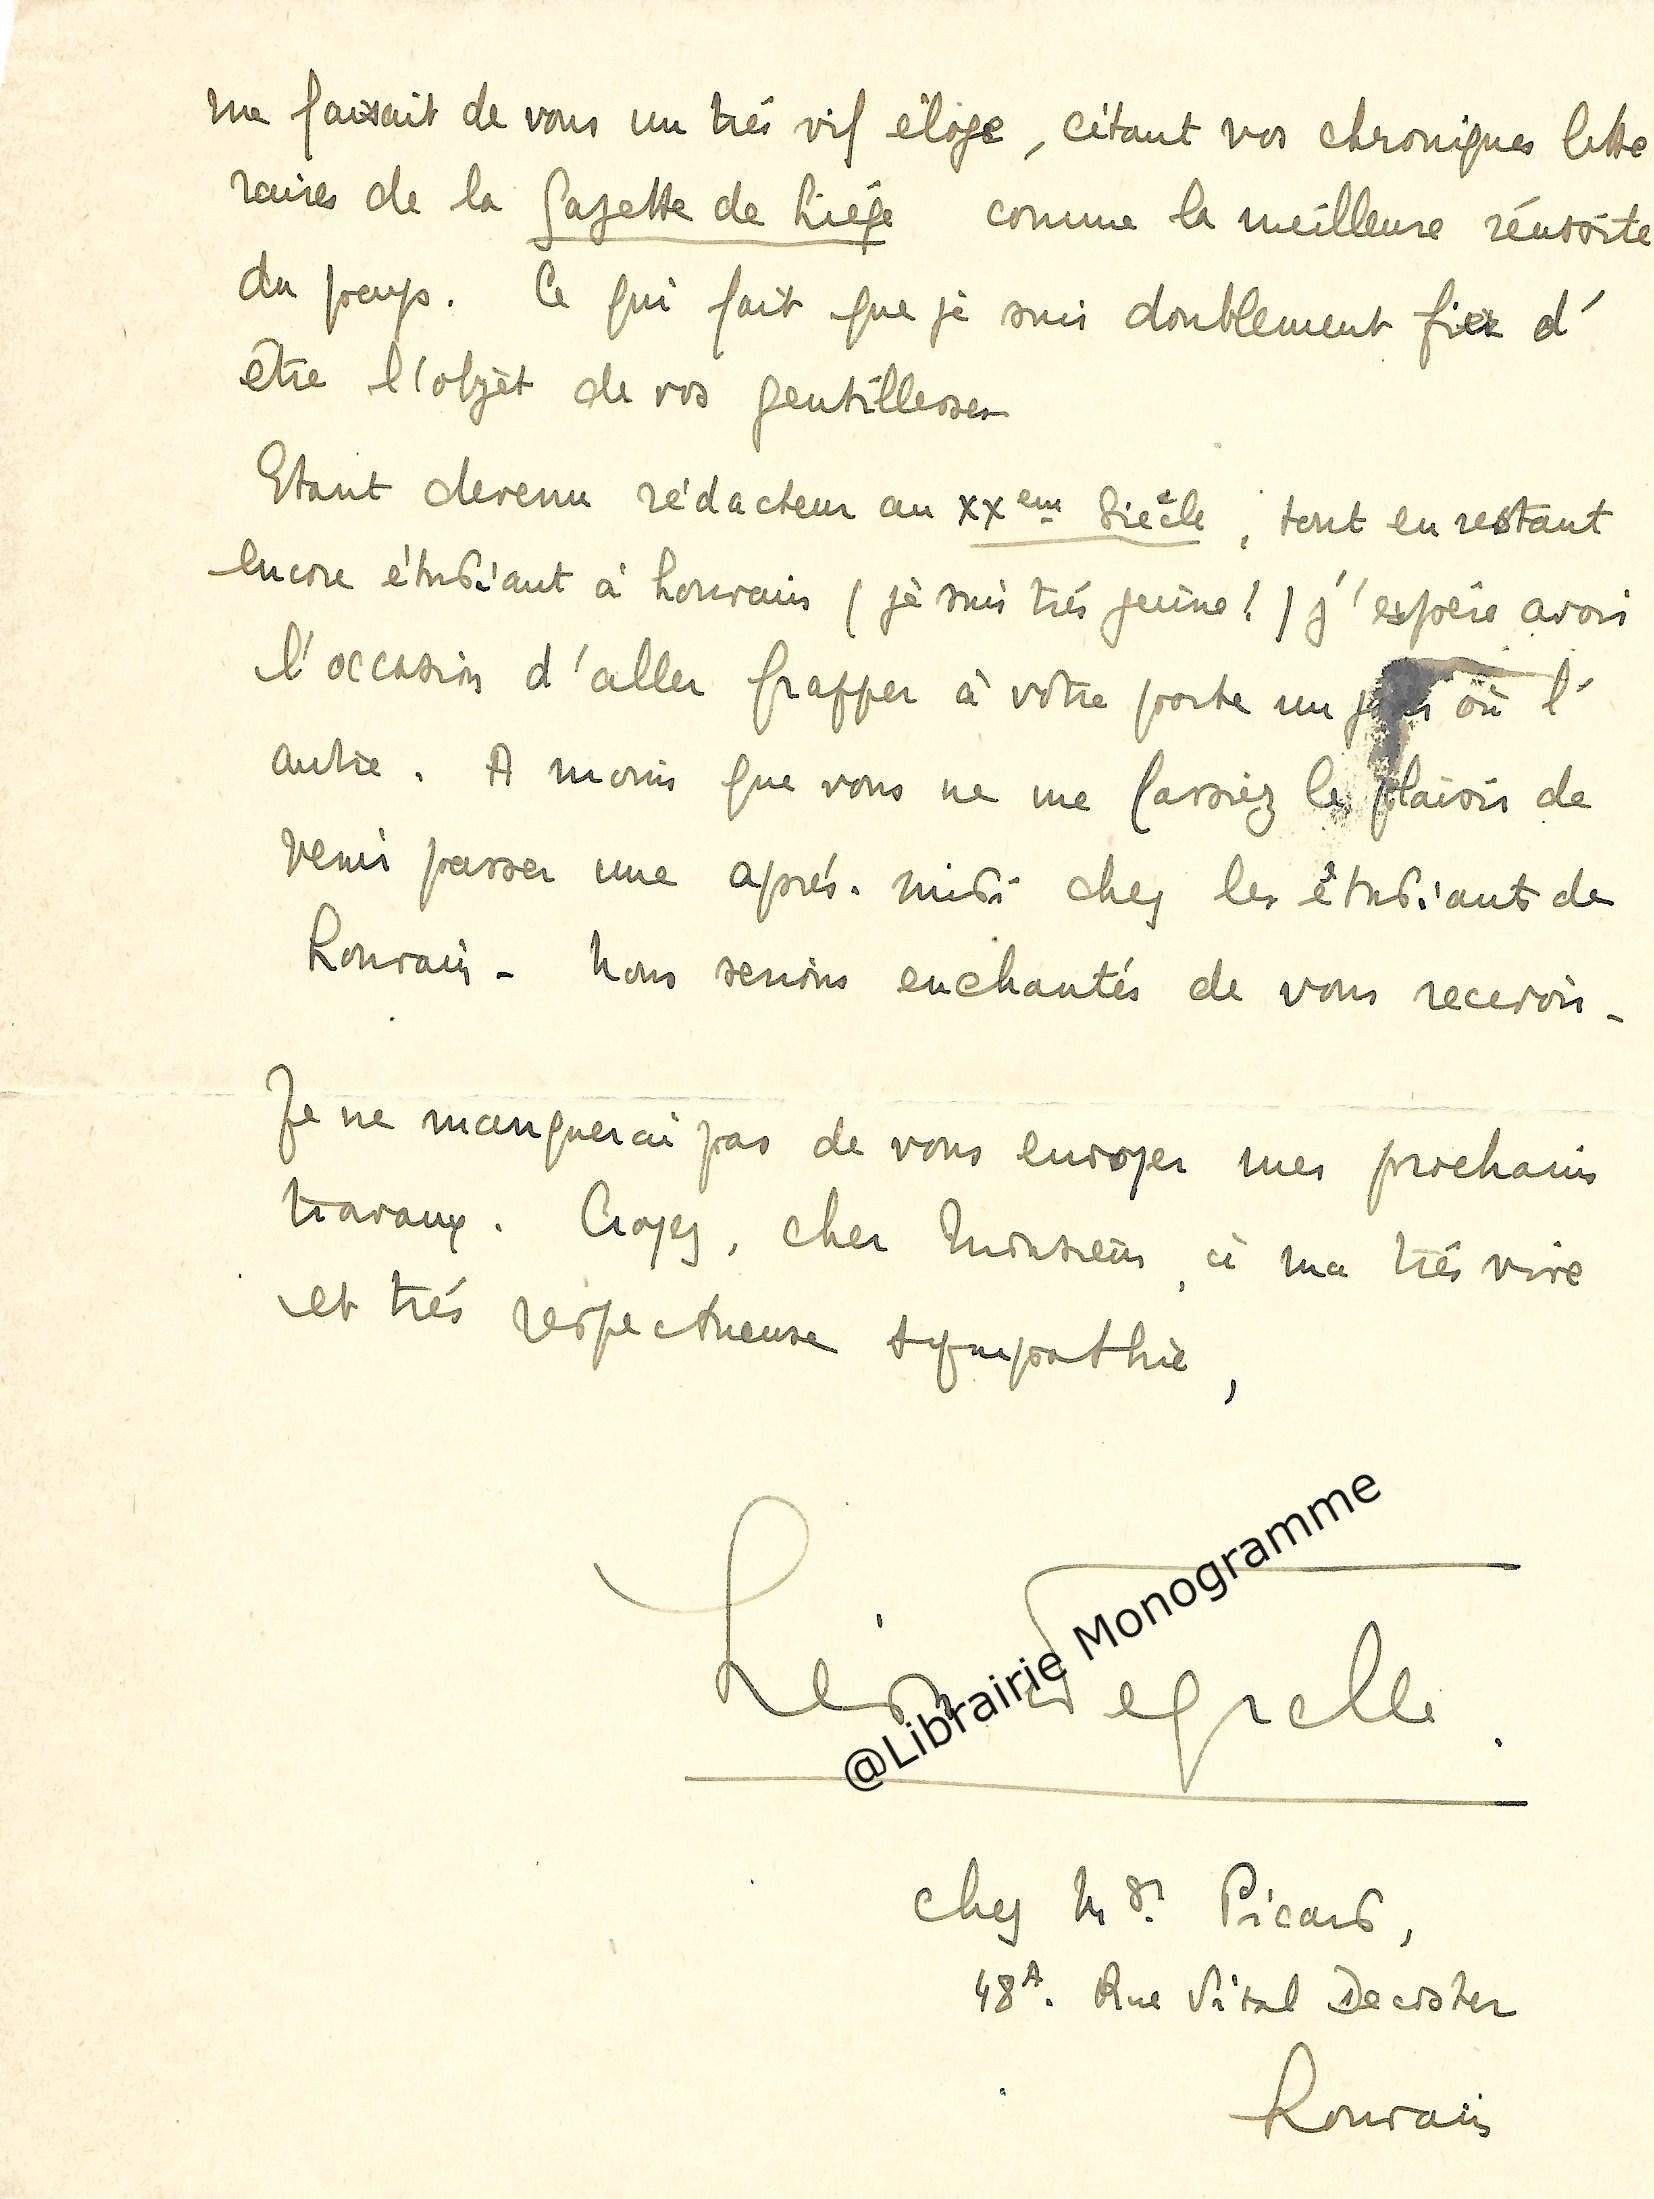 me faisait de vous un trés vif éloge, citant vos chroniques litté
raires de la Gazette de Liége comme la meilleure réussite
du pays. Ce qui fait que je suis doublement fier d'
être l'objet de vos gentillesses
Etant devenu rédacteur au XXeme Siècle, tout en restant
encore étudiant à Louvain (je suis trés jeune!) j'espére avoir
l'occasion d'aller frapper à votre porte un jour où l'
autre. A moins que vous ne me fassiez le plaisir de
venir passer une aprés-midi chez les étudiants de
Louvain - Nous serions enchantés de vous recevoir -
Je ne manquerai pas de vous envoyer mes prochains
travaux. Croyez, cher Monsieur, à ma trés vive
et trés respectueuse sympathie,
Léon Degrelle.
@Librairie Monogramme
chez Mgr. Picard,
48A. Rue Vital Decoster
Louvain